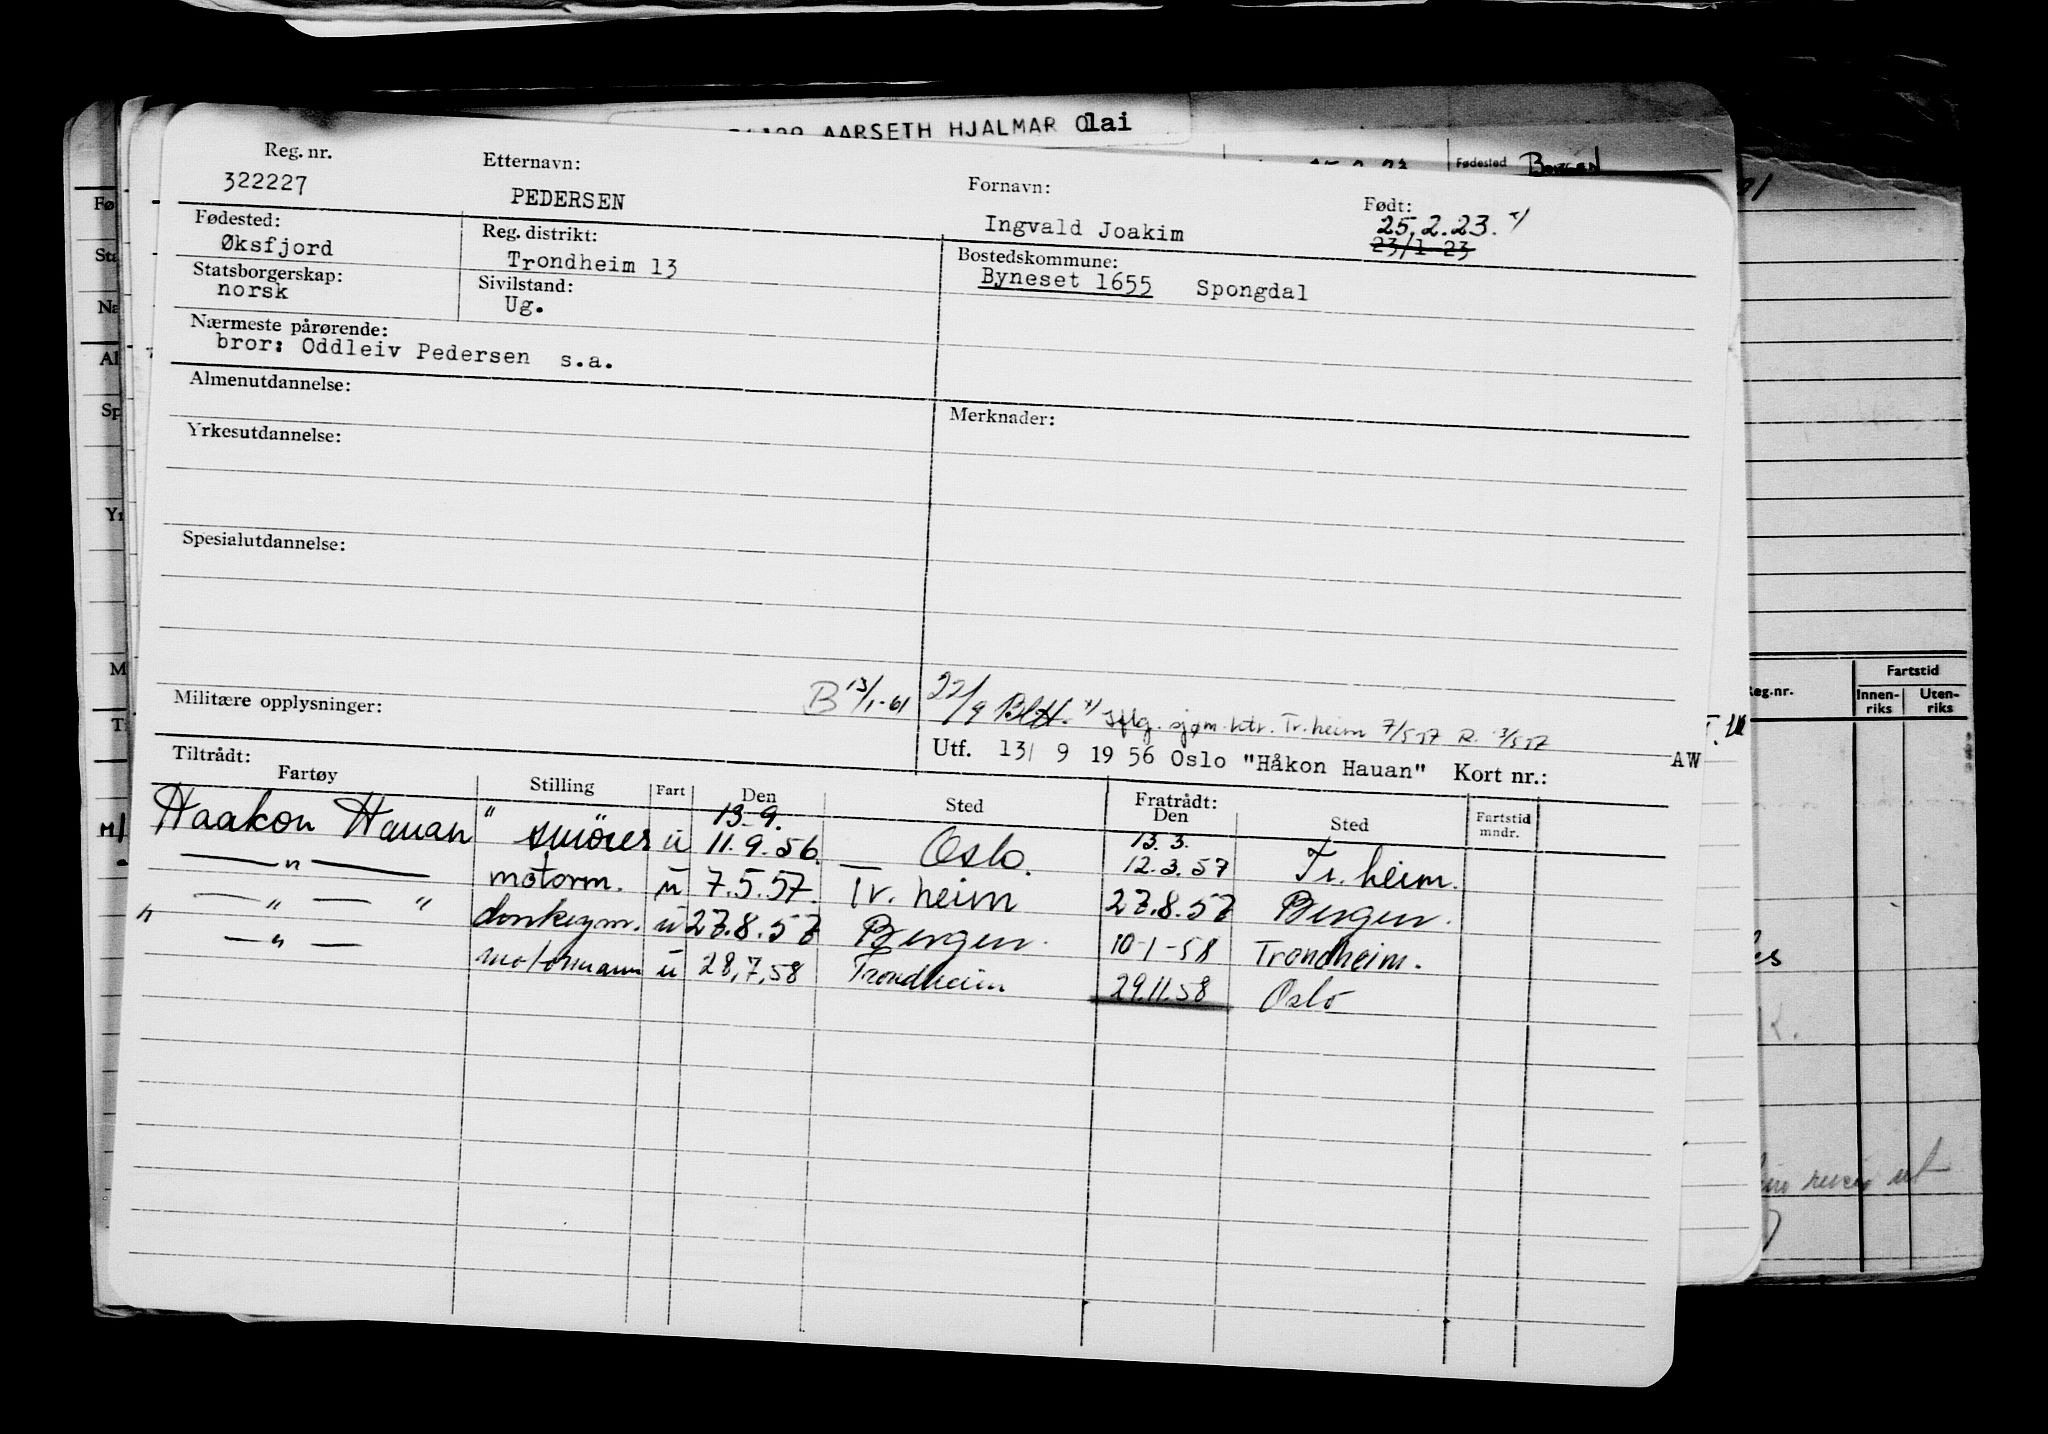 AARSETH HJALMAR Olai
Fødested
Reg. nr. Etternavn: Fornavn: Født:
322227 PEDERSEN Ingvald Joakim 25.2.23. x/
23/1-23
Fødested: Reg. distrikt: Bostedskommune:
Øksfjord Trondheim 13 Byneset 1655 Spongdal
Statsborgerskap: Sivilstand:
norsk Ug.
Nærmeste pårørende:
bror: Oddleiv Pedersen s.a.
Almenutdannelse: Merknader:
Yrkesutdannelse:
Spesialutdannelse:
Militære opplysninger: B 13/1-61 22/9 x/ Iflg. sjøm.ktr. Tr.heim 7/5 57 R. 13/5 57
Utf. 13/ 9 19 56 Oslo "Håkon Hauan" Kort nr.: AW
Tiltrådt: Fratrådt:
Fartøy Stilling Fart Den Sted Den Sted Fartstid mndr.
13.9. 13.3.
Haakon Hauan " smører u 11.9.56. Oslo. 12.3.57 Tr.heim.
— " — motorm. u 7.5.57. Tr.heim 27.8.57 Bergen.
— " — " donkeym. u 27.8.57 Bergen. 10-1-58 Trondheim.
" — " — motormann u 28.7.58 Trondheim 29.11.58 Oslo
Reg.nr. Fartstid
Innenriks Utenriks